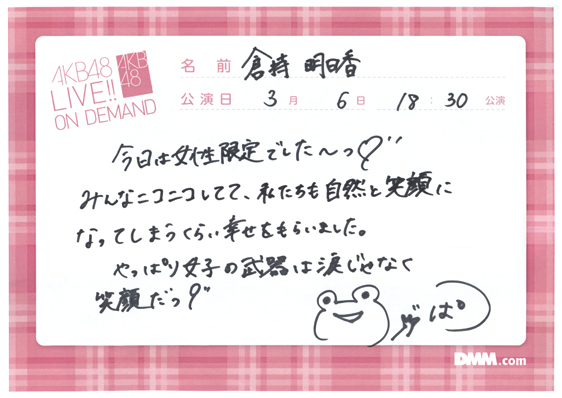 AKB48
LIVE!!
ON DEMAND
AKB
48
名前 倉持 明日香
公演日 3月 6日 18:30 公演
今日は女性限定でした〜っ♡"
みんなニコニコしてて、私たちも自然と笑顔に
なってしまうくらい幸せをもらいました。
やっぱり女子の武器は涙じゃなく
笑顔だっ!"
DMM.com